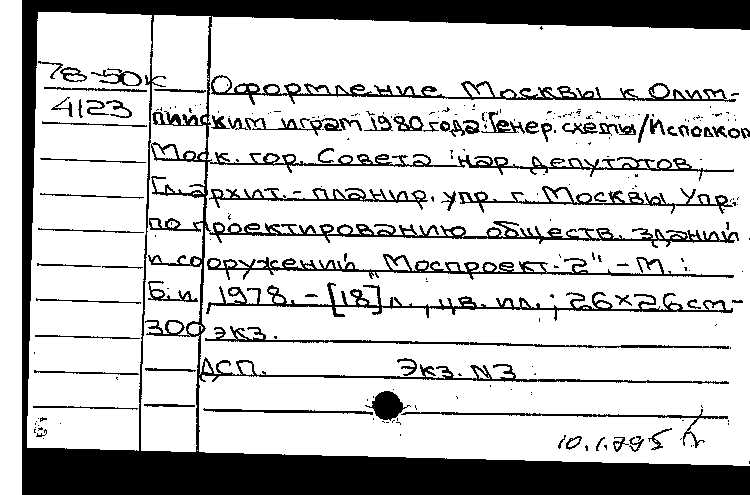 78-50к
4123
Оформление Москвы к Олим-
пийским играм 1980 года: Генер. схемы/Исполком
Моск. гор. Совета нар. депутатов,
Гл. архит.-планир. упр. г. Москвы, Упр.
по проектированию обществ. зданий
и сооружений „Моспроект-2". - М.:
Б. и., 1978. - [18] л., цв. ил.; 26×26 см-
300 экз.
ДСП. Экз. N3
6